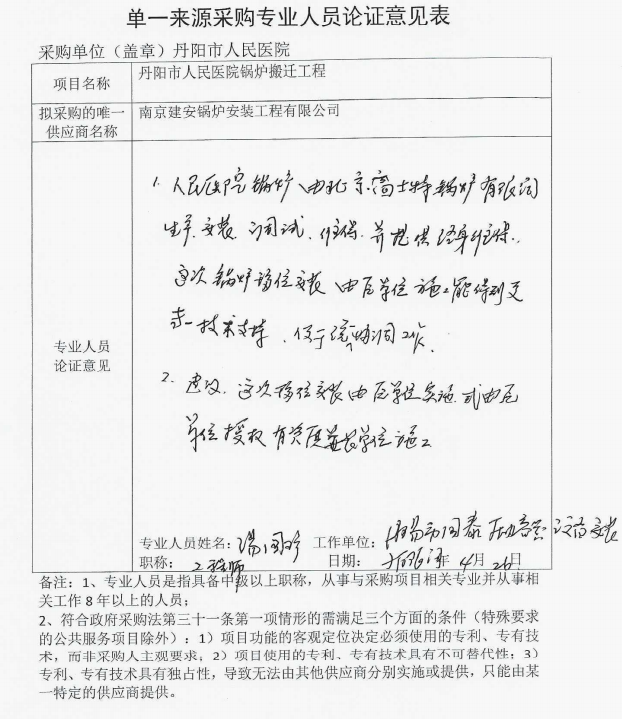 单一来源采购专业人员论证意见表
采购单位（盖章）丹阳市人民医院
项目名称
丹阳市人民医院锅炉搬迁工程
拟采购的唯一
供应商名称
南京建安锅炉安装工程有限公司
专业人员
论证意见
1. 人民医院锅炉由北京富士特锅炉有限公司
生产、安装、调试、维保，并提供终身维保，
这次锅炉移位安装由原单位施工能得到更
一技术支持，协调工作。
2. 建议，这次移位安装由原单位实施或由原
单位授权有资质安装单位施工
专业人员姓名：
工作单位：
职称：工程师
日期：年4月26日
备注：1、专业人员是指具备中级以上职称，从事与采购项目相关专业并从事相
关工作8年以上的人员；
2、符合政府采购法第三十一条第一项情形的需满足三个方面的条件（特殊要求
的公共服务项目除外）：1）项目功能的客观定位决定必须使用的专利、专有技
术，而非采购人主观要求；2）项目使用的专利、专有技术具有不可替代性；3）
专利、专有技术具有独占性，导致无法由其他供应商分别实施或提供，只能由某
一特定的供应商提供。